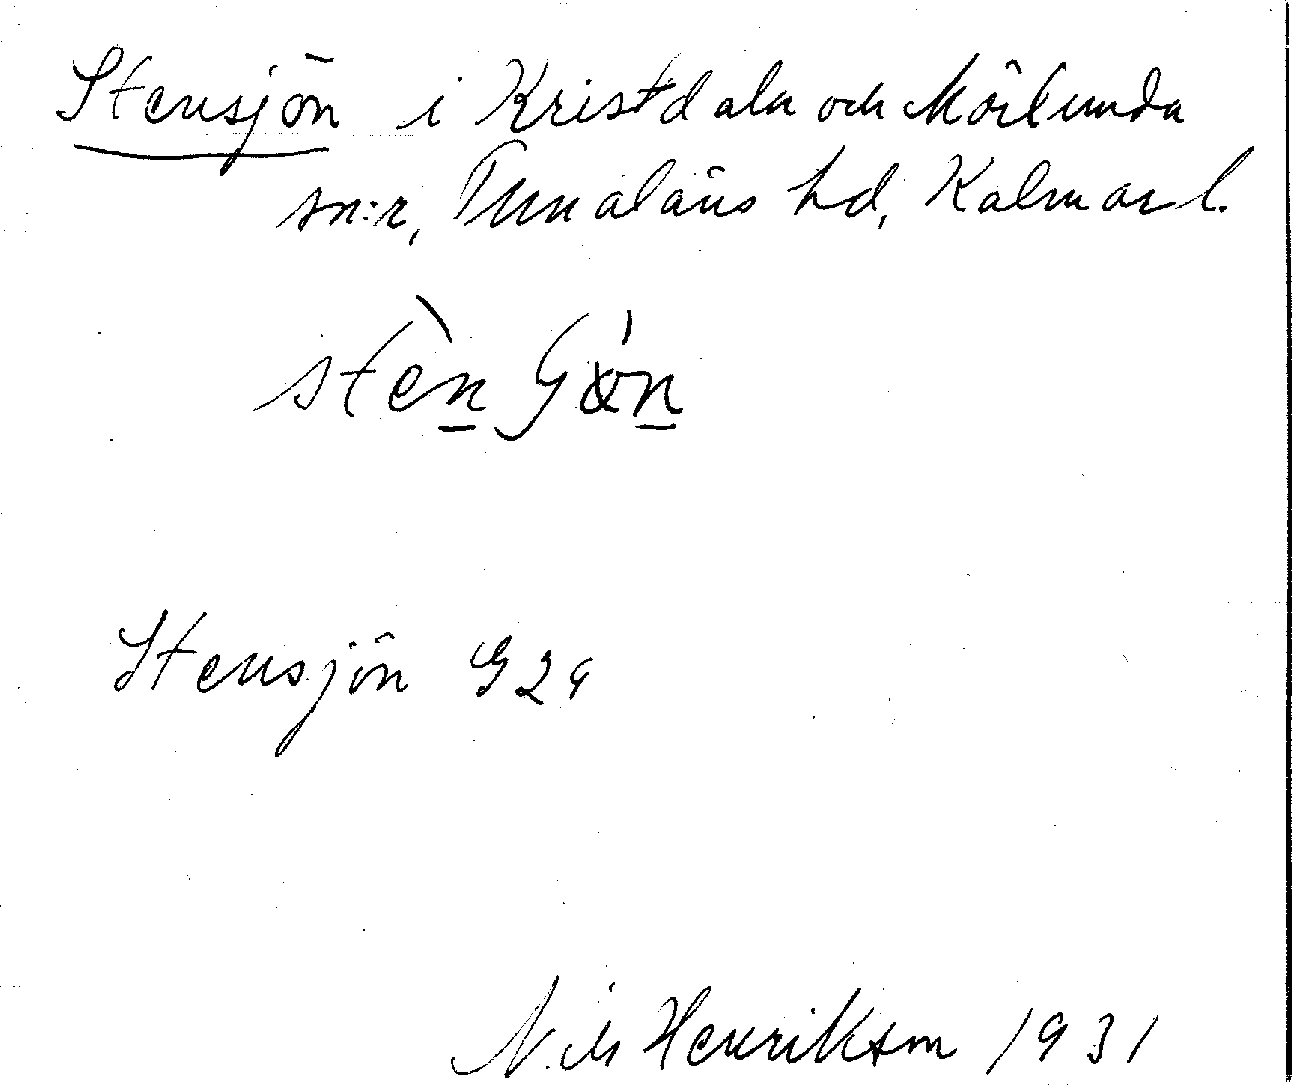 Stensjön i Kristdala och Mörlunda
sn:r, Tunaläns hd, Kalmar l.
Stensjön G 29
Nils Henrikson 1931